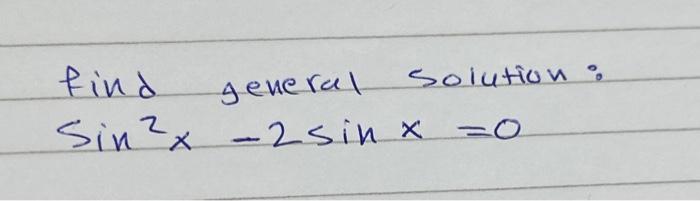 find general solution:
Sin²x - 2 sin x = 0